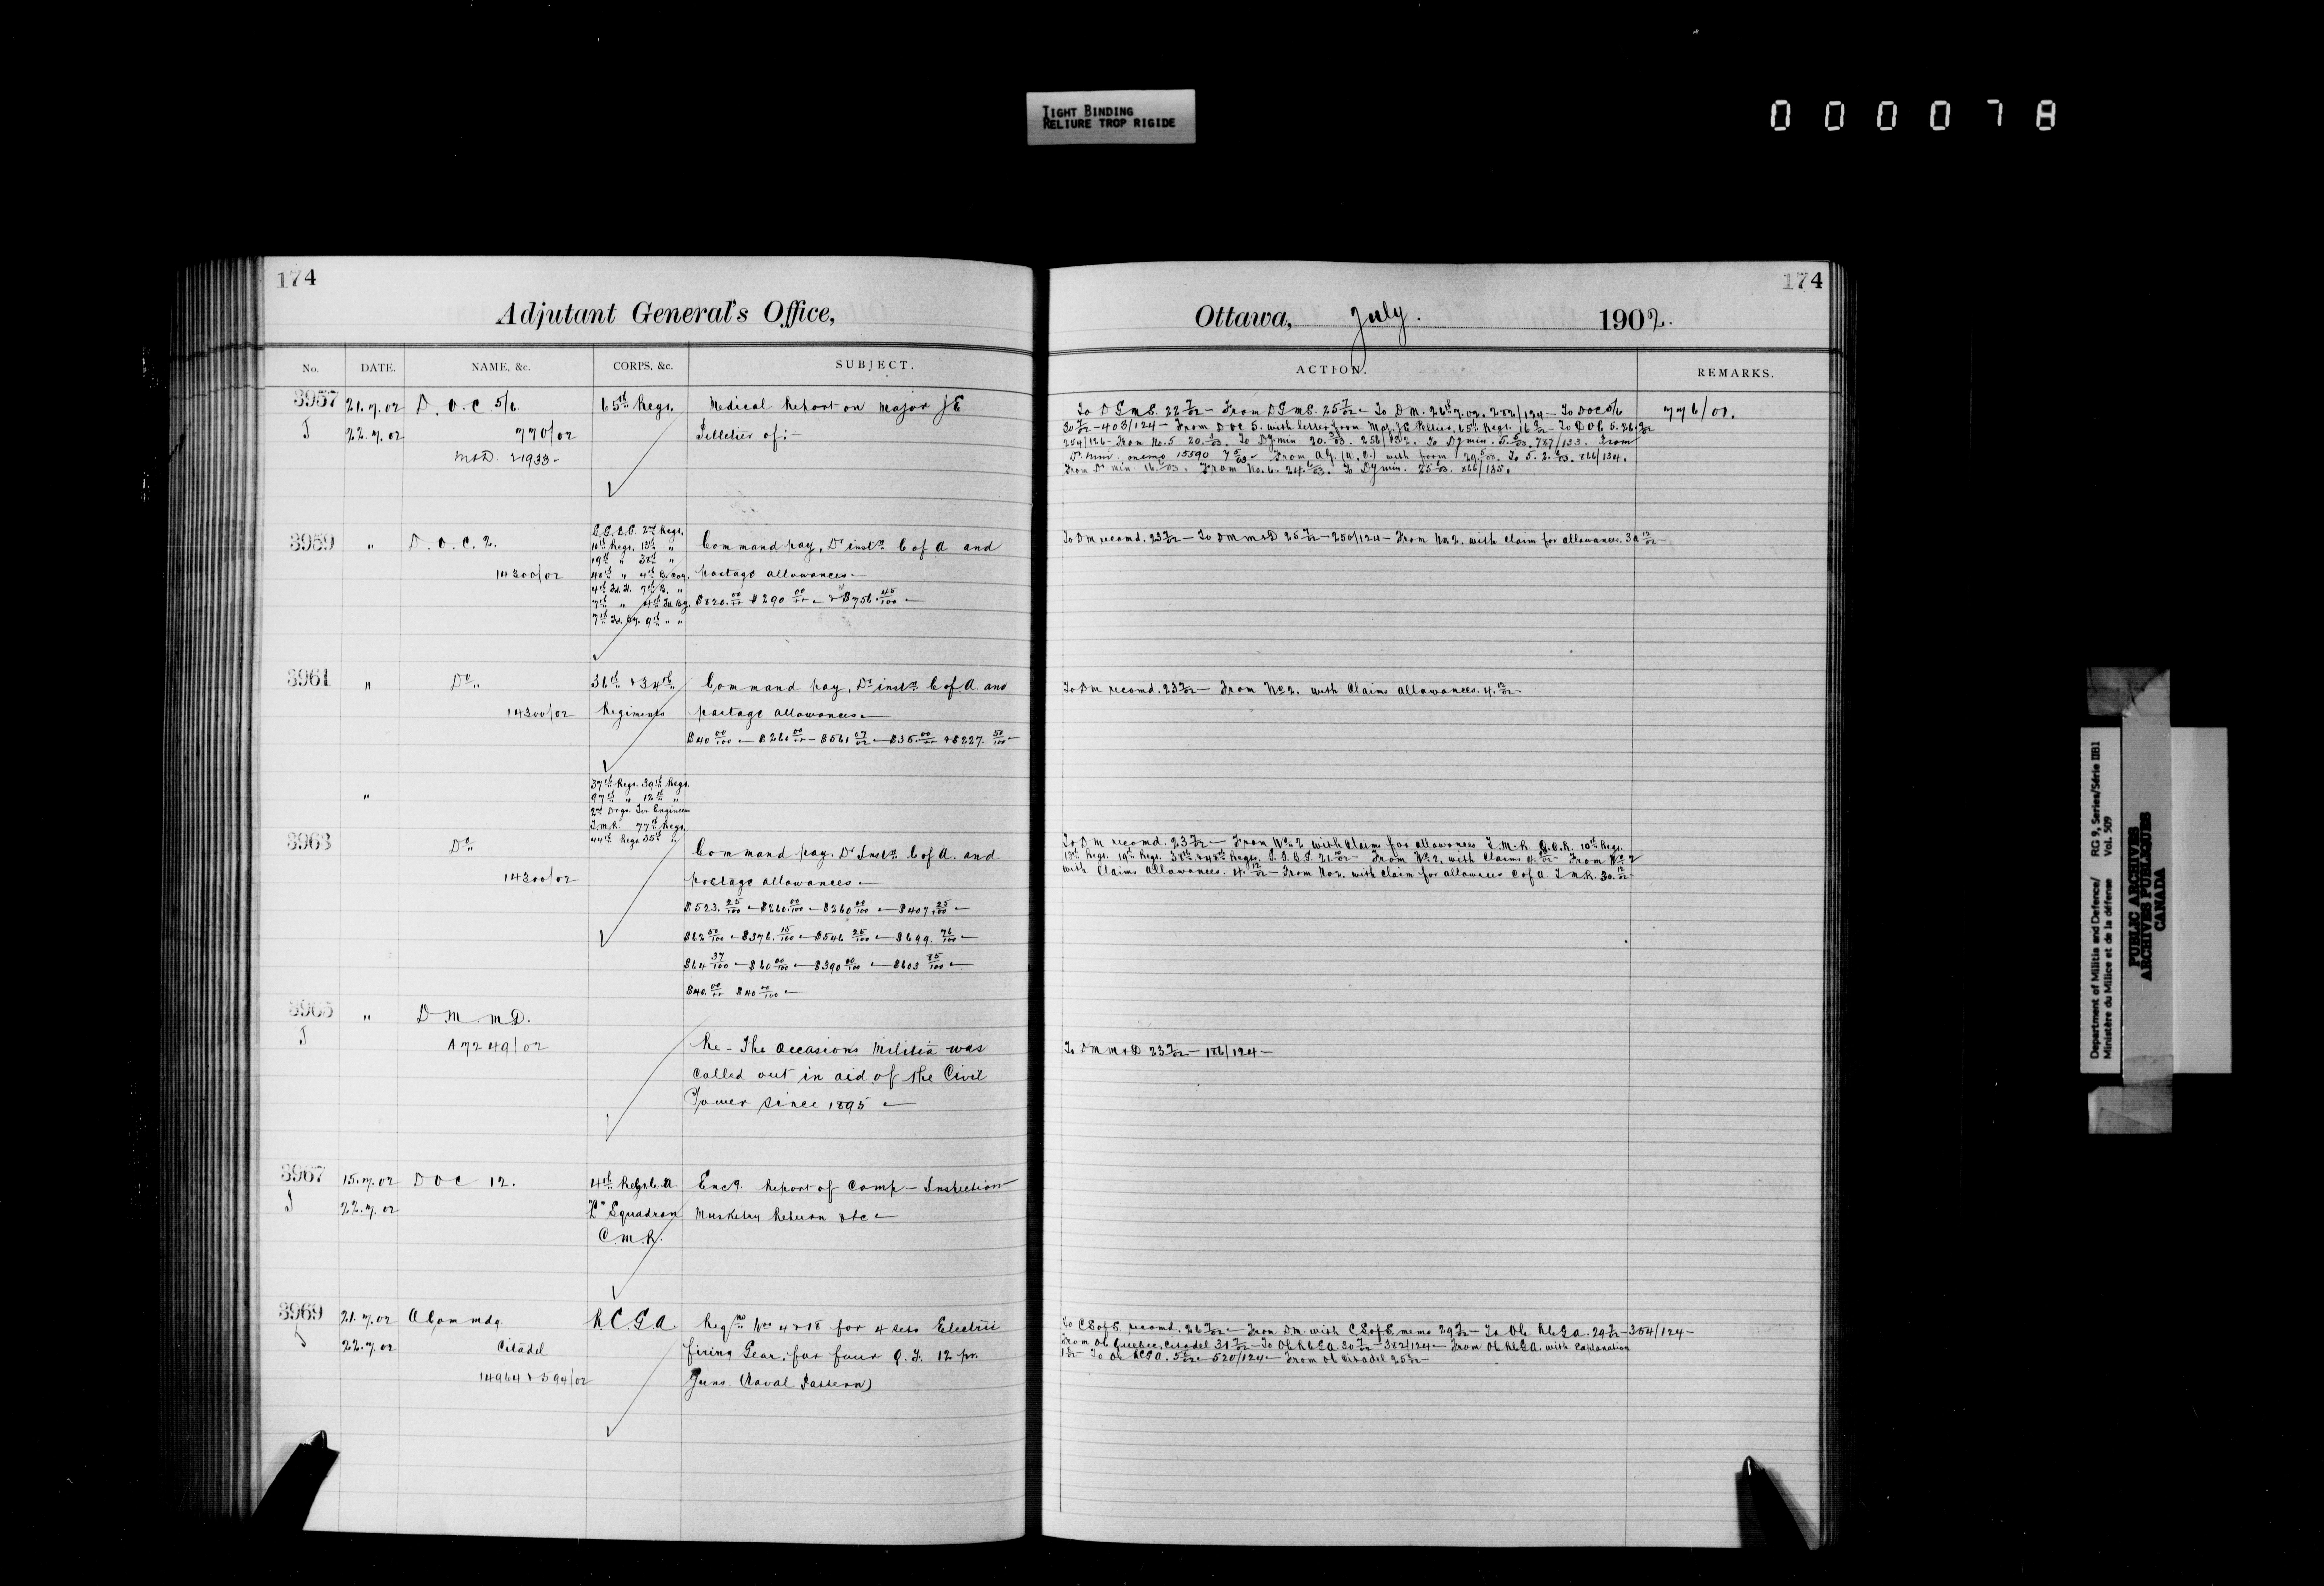 TIGHT BINDING
RELIURE TROP RIGIDE
0 0 0 0 7 8
174
Adjutant General's Office,
No. DATE. NAME, &c. CORPS, &c. SUBJECT.
3957 21.7.02 D.O.C. 5/6. 65th Regt. Medical Report on Major J E
J 22.7.02 770/02 Pelletier of:—
M&D. 21933-
C.G.B.G. 2nd Regt.
3959 " D.O.C. 2. 10th Regt. 13th " Command pay, Dl instn C of A and
19th " 38th "
14300/02 48th " 4th B. Coy. postage allowances—
7th B. "
7th " $820.00 $290 00 — & $756.45/100 —
7th Fd. By. 9th " "
3961 " Do " 36th & 34th " Command pay, Dl instn C of A and
14300/02 Regiments postage allowances—
$40 00/100 — $260 00 — $561 07 — $35.00 & $227. 50/100 —
37th Regt. 39th Regt.
" 97th " 12th "
2nd Drgs. Engineers
T.M.R. 77th Regt.
44th Regt 35th "
3963 Do " Command pay. Dl Instn C of A. and
14300/02 postage allowances—
$523. 25/100 — $260.00/100 — $260 00/100 — $407.25/100 —
$62 50/100 — $376.15/100 — $546 25/100 — $699. 76/100 —
$64 37/100 — $60 00/100 — $390 00/100 — $603 85/100 —
$40.00 $40 00/100 —
3965 " D M. M D.
J A7249/02 Re - The occasions Militia was
called out in aid of the Civil
Power since 1895 —
3967 15.7.02 D O C 12. 4th Regt C A Encg. Report of Camp - Inspection
J 22.7.02 Squadron Musketry Return &tc —
C.M.R.
3969 21.7.02 O Commdg. R.C.G.A. Reqns Nos 4 & 18 for 4 sets Electric
J 22.7.02 Citadel firing Gear, for four Q.F. 12 pr.
14964 & 594/02 Guns (Naval Pattern)
174
Ottawa, July. 1902.
ACTION. REMARKS.
To D G M S. 22 7/02 — From D G M S. 25 7/02 — To D M. 26th 7.02. 282/124 — To DOC 5/6 776/01.
30 7/02 - 403/124 — From D O C 5. with letter from Maj. J E Pelletier. 65th Regt. 16 9/02 — To D O C 5. 26 9/02
254/126 - From No. 5 20. To Dy min 20. 256/132. To Dy min. 787/133. From
Dy. min. memo 15590 From A.G. To 5. 2. 866/134.
From Dy min. 16. From No. 6. 24. To Dy min. 25. 866/135.
To D M recomd. 23 7/02 — To D M M & D 25 7/02 - 250/124 — From No 2. with claim for allowances. 30 12/02 —
To D M recomd. 23 7/02 — From No 2. with Claims allowances. 4. 12/02 —
To D M recomd. 23 7/02 — From No 2 with Claims for allowances T.M.R. Q.O.R. 10th Regt.
13th Regt. 19th Regt. 38th & 48th Regts. 21. From No 2. with Claims 4. From No 2
with Claims allowances. 4. 12/02 — From No 2. with claim for allowances C of A T M.R. 30. 12/02 —
To D M M & D 23 7/02 — 186/124 —
To C S of S. recomd. 26 7/02 — From D M. with C S of S. memo 29 7/02 — To O C R C G A. 29 7/02 - 354/124 —
From O C Quebec Citadel 31 7/02 — To O C R C G A 30 7/02 — 382/124 — From O C R C G A. with explanation
To O C RCGA. 520/124 — From O C Citadel 25
Department of Militia and Defence/ RG 9, Series/Série IIB1
Ministère du Milice et de la défense Vol. 509
PUBLIC ARCHIVES
ARCHIVES PUBLIQUES
CANADA